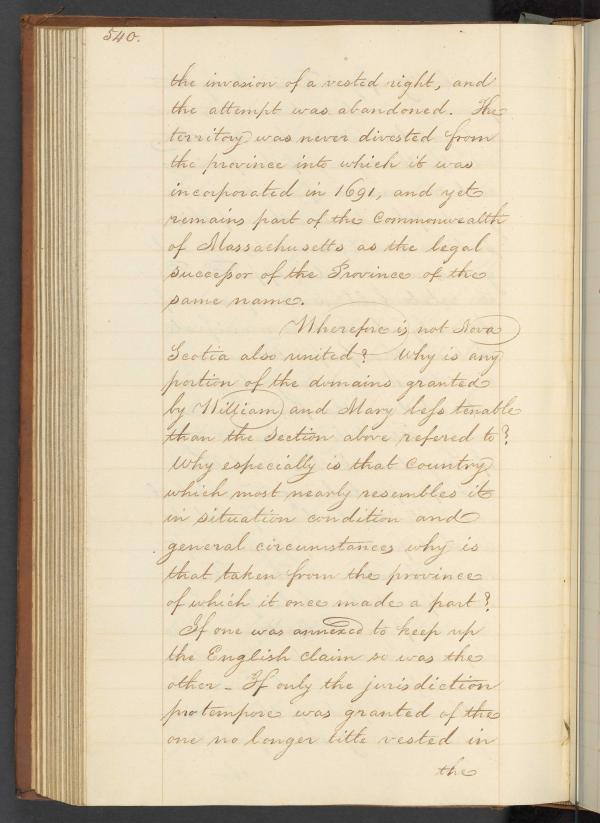 540.
the invasion of a vested right, and
the attempt was abandoned. The
territory was never divested from
the province into which it was
incorporated in 1691, and yet
remains part of the Commonwealth
of Massachusetts as the legal
successor of the Province of the
same name.
Wherefore is not Nova
Scotia also united? Why is any
portion of the domains granted
by William and Mary less tenable
than the section above refered to?
Why especially is that country
which most nearly resembles it
in situation condition and
general circumstances why is
that taken from the province
of which it once made a part?
If one was annexed to keep up
the English claim so was the
other - If only the jurisdiction
pro tempore was granted of the
one no longer title vested in
the